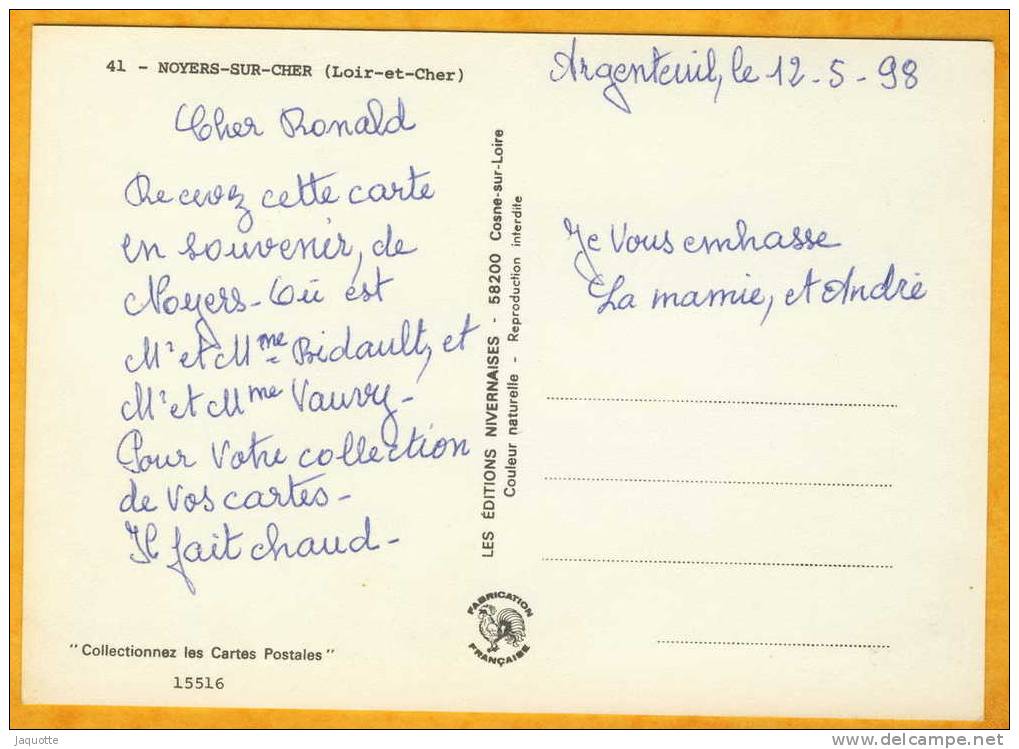 41 - NOYERS-SUR-CHER (Loir-et-Cher)
Argenteuil, le 12-5-98
Cher Ronald
Recevez cette carte
en souvenir, de
Noyers - Où est
Mr et Mme Bidault, et
Mr et Mme Vauvy -
Pour Votre collection
de vos cartes -
Il fait chaud -
Je Vous embrasse
La mamie, et André
LES ÉDITIONS NIVERNAISES - 58200 Cosne-sur-Loire
Couleur naturelle - Reproduction interdite
FABRICATION
FRANÇAISE
"Collectionnez les Cartes Postales"
15516
jaquotte
delcampe.net